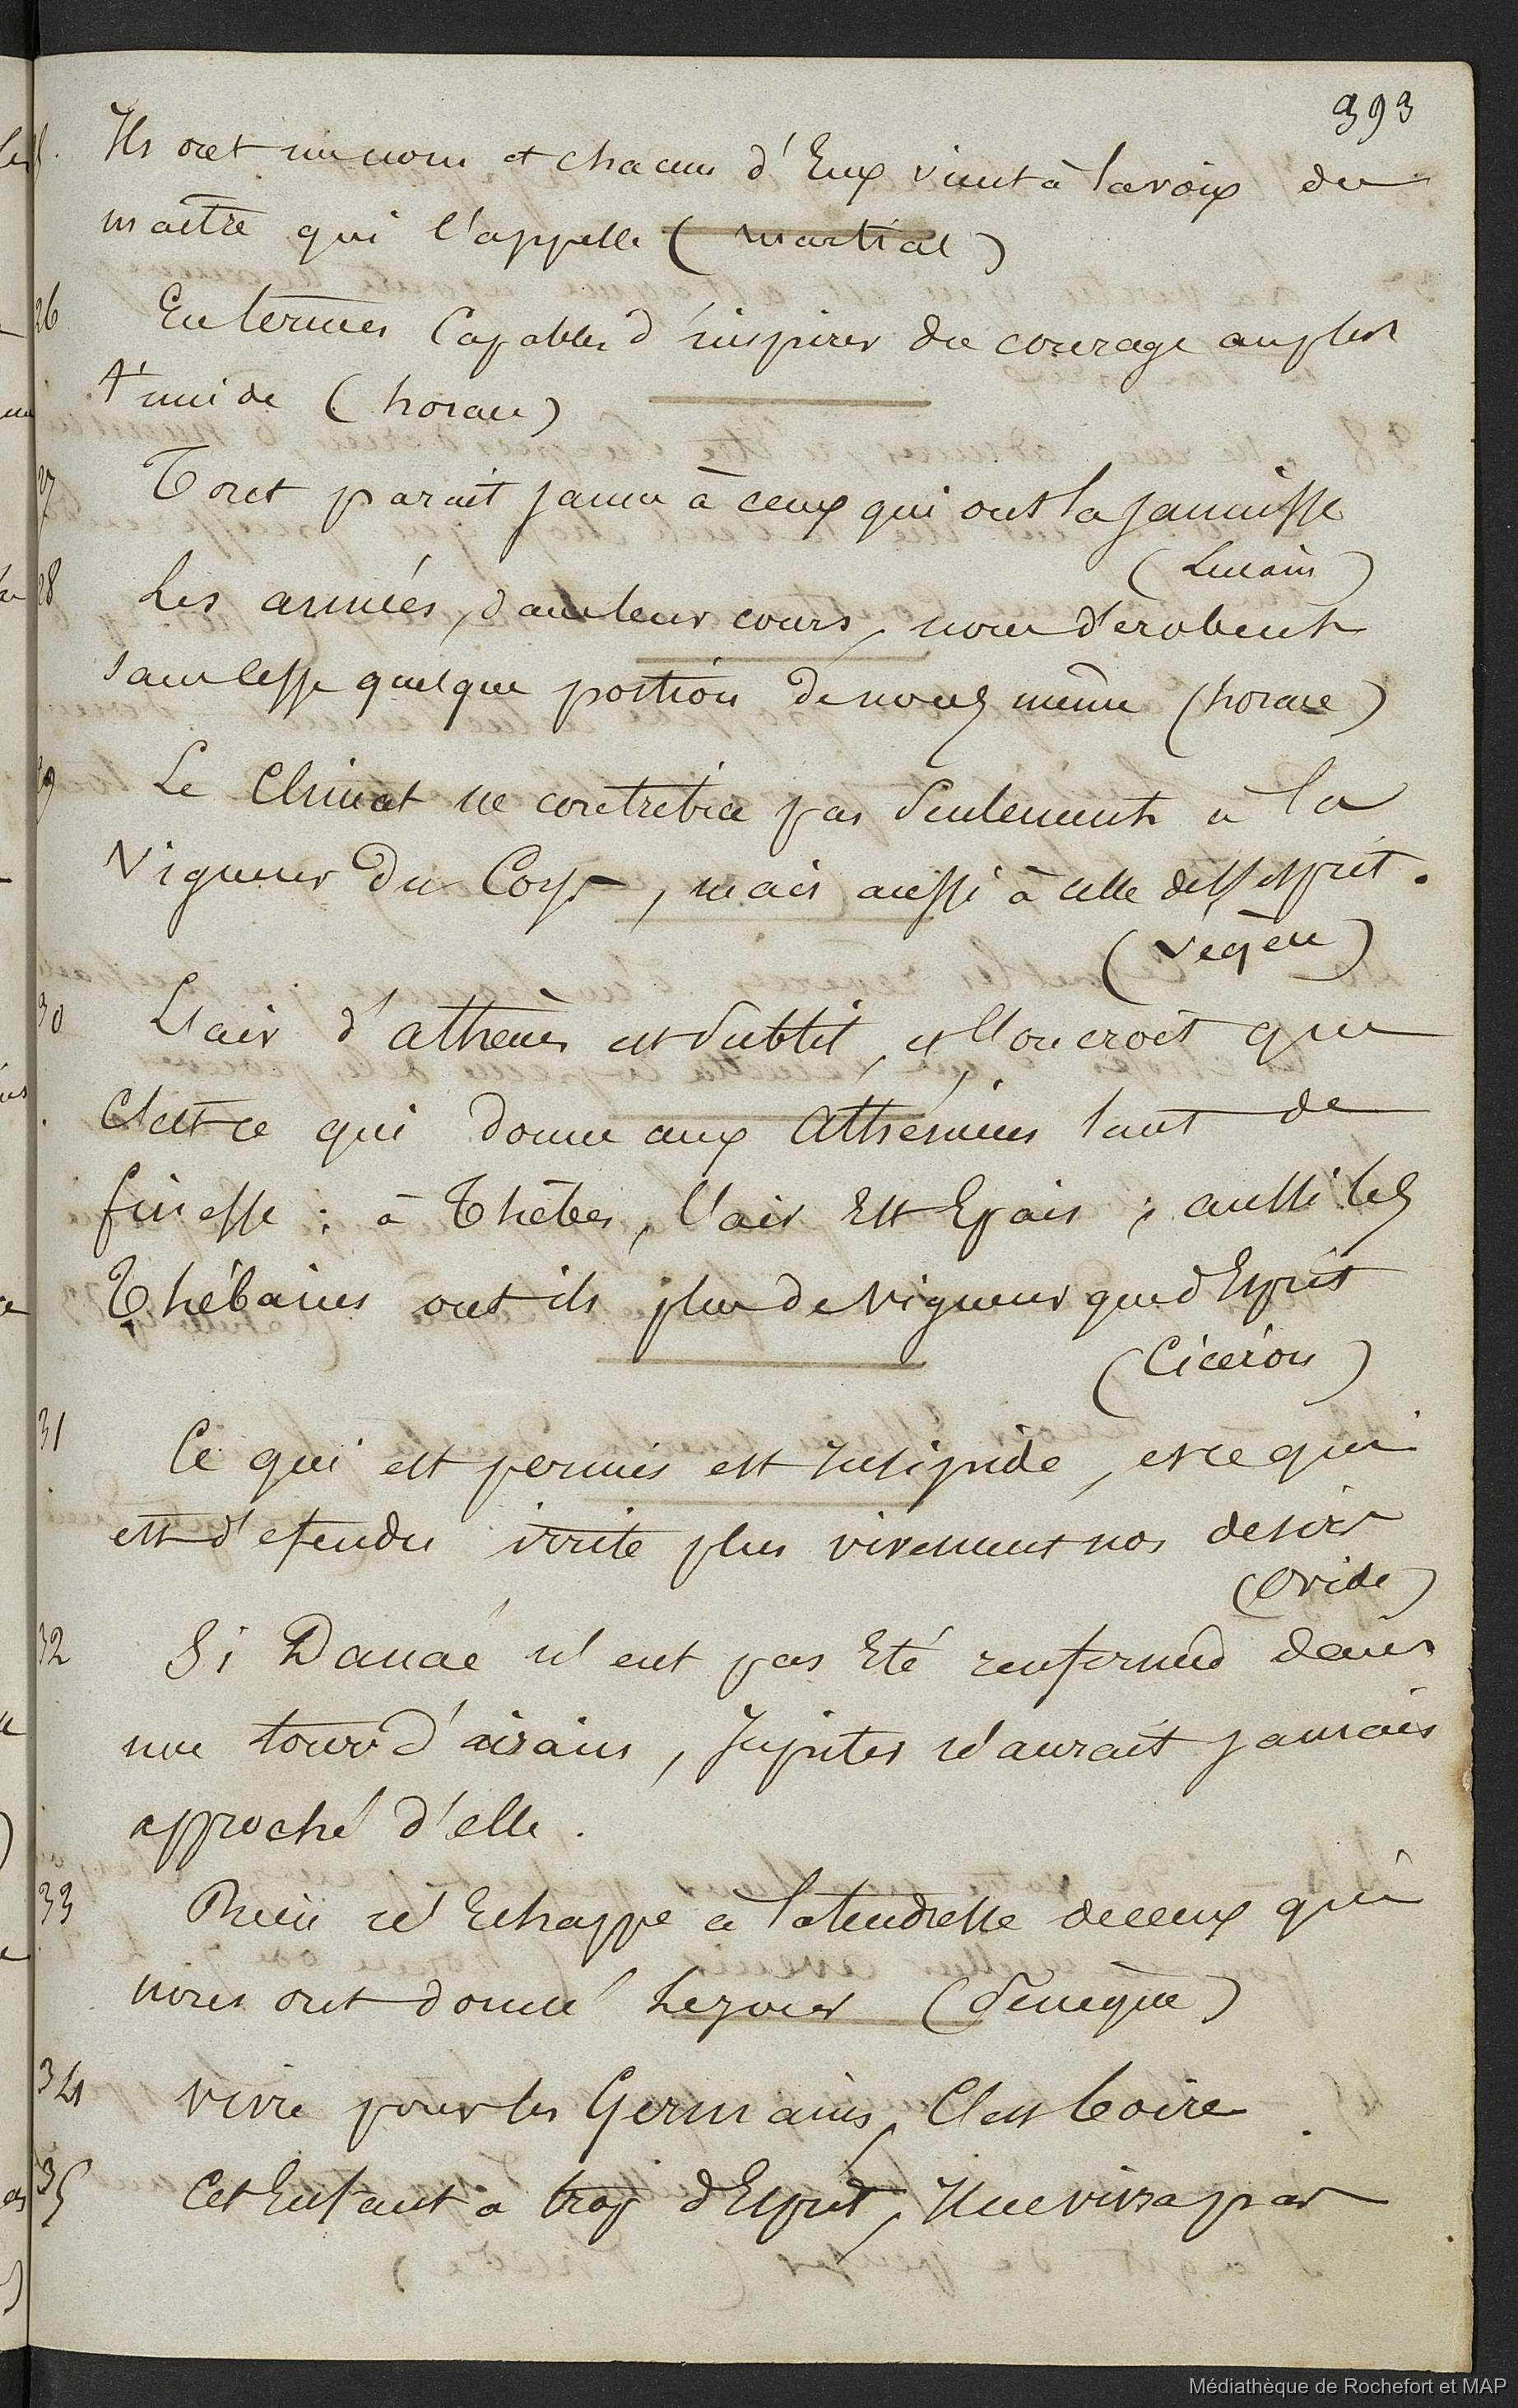 393
Ils ont un nom et chacun d'Eux vient à la voix du
maitre qui l'appelle (martial)
26 En termes Capables d'inspirer du courage au plus
timide (horace)
27 Tout parait jaune à ceux qui ont la jaunisse
(Lucain)
28 Les années, dans leur cours, nous dérobent
sans cesse quelque portion de nous même (horace)
29 Le Climat ne contribue pas seulement à la
Vigueur du Corps, mais aussi à celle de l'esprit.
(végèce)
30 L'air d'athènes est subtil, et l'on croit que
c'est ce qui donne aux Athéniens tant de
finesse ; à Thèbes, l'air Est Epais ; aussi les
Thébains ont ils plus de vigueur que d'Esprit
(Cicéron)
31 Ce qui est permis est insipide, et ce qui
est défendu irrite plus vivement nos desirs
(Ovide)
32 Si Danaé n'eut pas Eté renfermée dans
une tour d'airain, Jupiter n'aurait jamais
approché d'elle.
33 Rien n'Echappe à la tendresse de ceux qui
nous ont donné le jour (Senèque)
34 vivre pour les Germains, C'est boire.
35 Cet Enfant a trop d'Esprit, Il ne vivra pas
Médiathèque de Rochefort et MAP